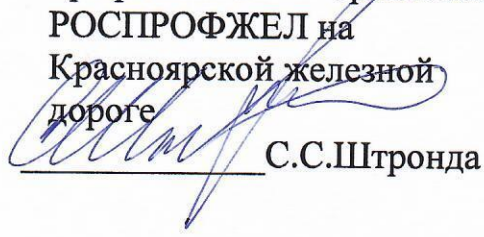 РОСПРОФЖЕЛ на
Красноярской железной
дороге
С.С.Штронда